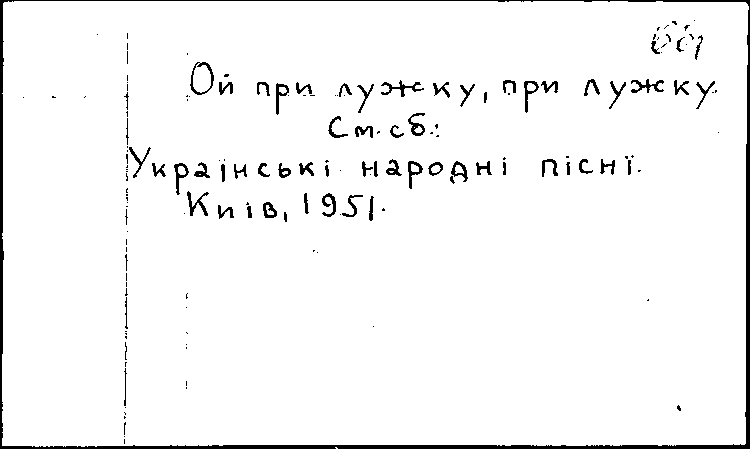 Ой при лужку, при лужку.
См. сб.:
Українські народні пісні.
Київ, 1951.